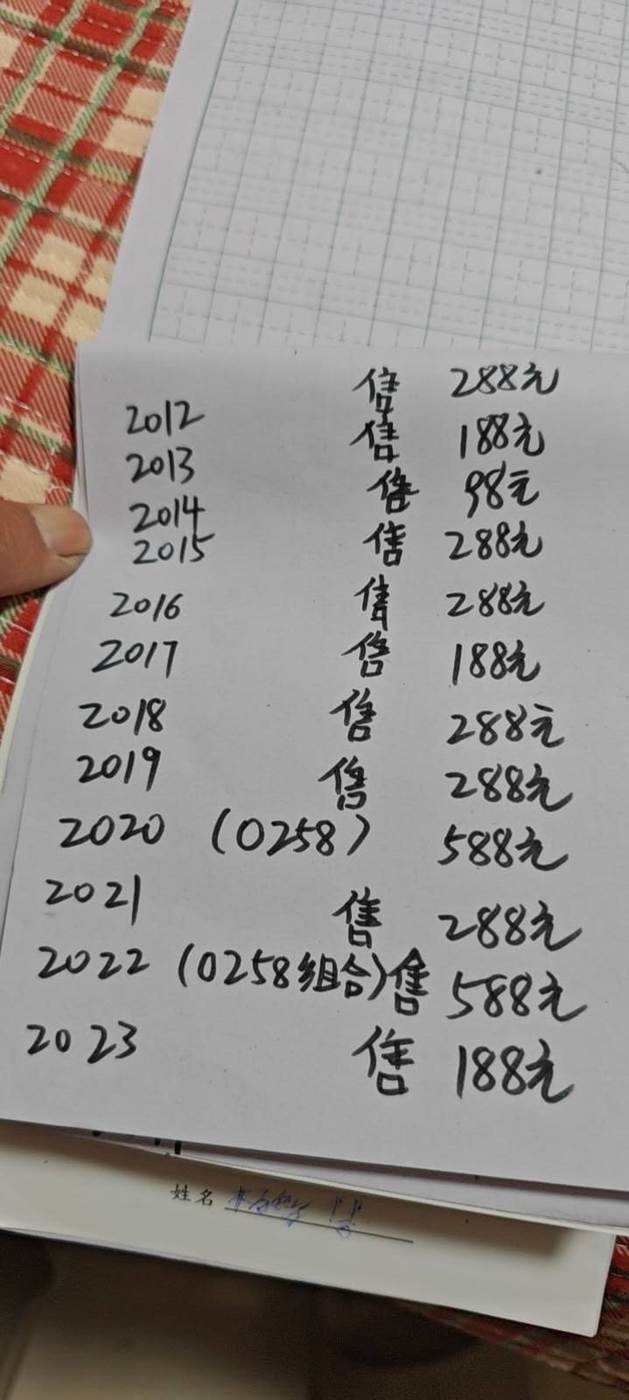 2012 售 288元
2013 售 188元
2014 售 98元
2015 售 288元
2016 售 288元
2017 售 188元
2018 售 288元
2019 售 288元
2020 (0258) 588元
2021 售 288元
2022 (0258组合)售 588元
2023 售 188元
姓名